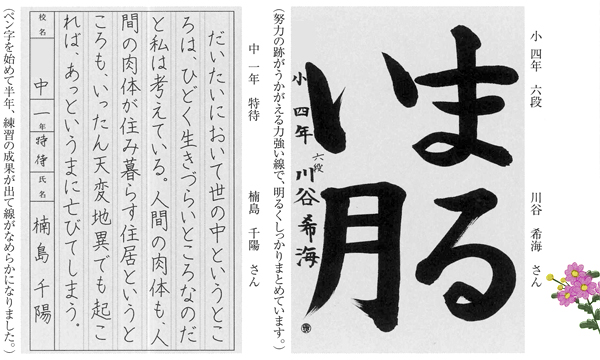 小四年　六段　川谷　希海　さん
まる
い月
小四年　六段　川谷希海
（努力の跡がうかがえる力強い線で、明るくしっかりまとめています。）
中一年　特待　楠島　千陽　さん
だいたいにおいて世の中というとこ
ろは、ひどく生きづらいところなのだ
と私は考えている。人間の肉体も、人
間の肉体が住み暮らす住居というと
ころも、いったん天変地異でも起こ
れば、あっというまに亡びてしまう。
校名　中　一年　特待　氏名　楠島　千陽
（ペン字を始めて半年、練習の成果が出て線がなめらかになりました。）